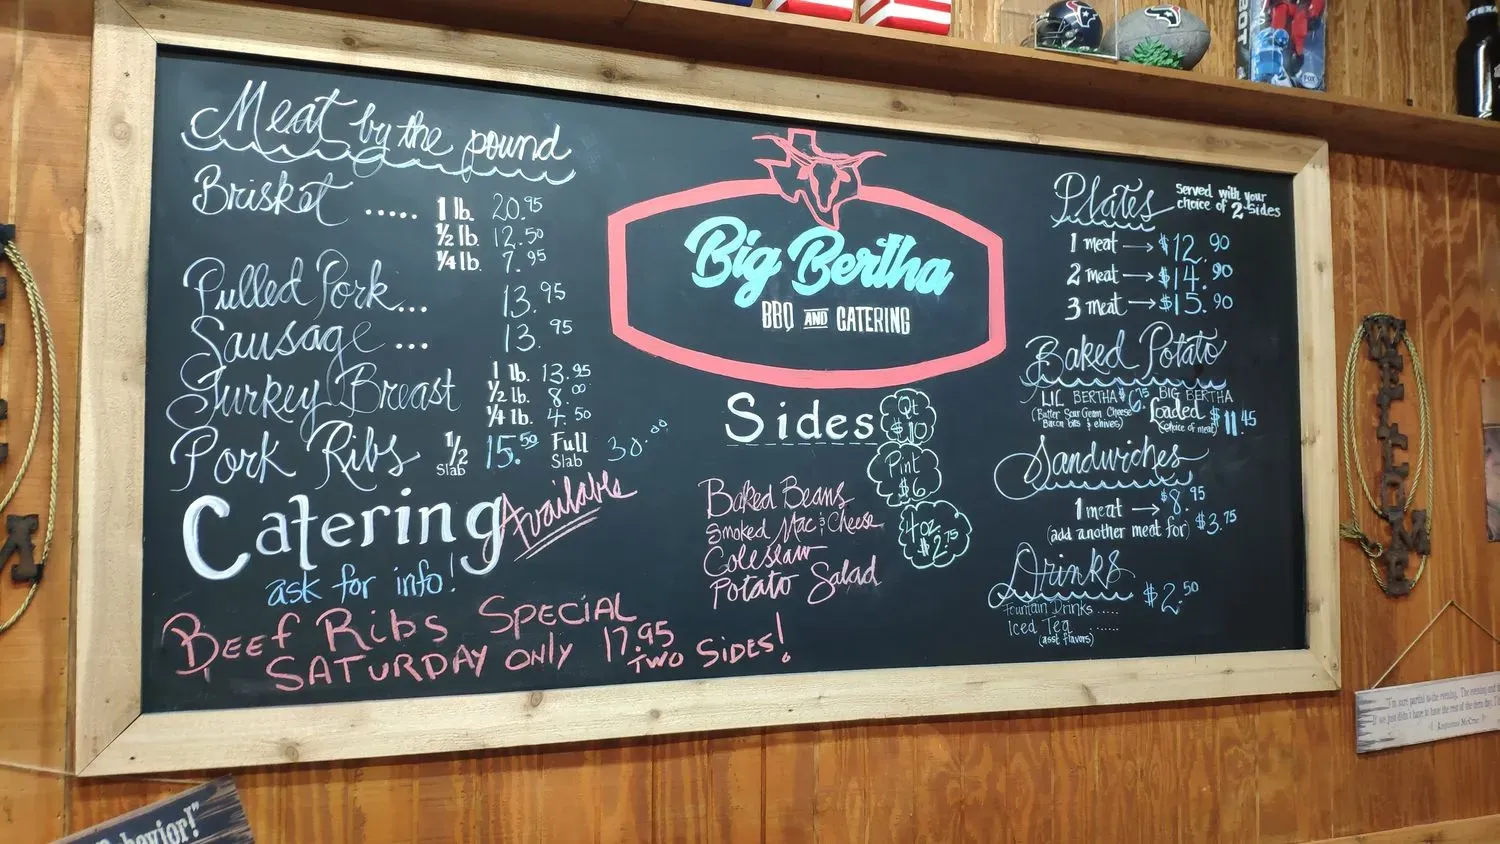 Meat by the pound
Brisket ..... 1 lb. 20.95
½ lb. 12.50
¼ lb. 7.95
Pulled Pork... 13.95
Sausage ... 13.95
Turkey Breast 1 lb. 13.95
½ lb. 8.00
¼ lb. 4.50
Pork Ribs ½ Slab 15.50 Full Slab 30.00
Catering Available
ask for info!
BEEF RIBS SPECIAL
SATURDAY ONLY 17.95
TWO SIDES!
Big Bertha
BBQ AND CATERING
Sides
Qt $10
Pint $6
4oz. $2.75
Baked Beans
Smoked Mac & Cheese
Coleslaw
Potato Salad
Plates served with your
choice of 2 sides
1 meat → $12.90
2 meat → $14.90
3 meat → $15.90
Baked Potato
LIL BERTHA $6.75
(Butter Sour Cream Cheese
Bacon bits & chives)
BIG BERTHA
Loaded $11.45
(choice of meat)
Sandwiches
1 meat → $8.95
(add another meat for) $3.75
Drinks
Fountain Drinks ..... $2.50
Iced Tea ......
(asst flavors)
WELCOME
Behavior!"
Augustus McCrae
FOX